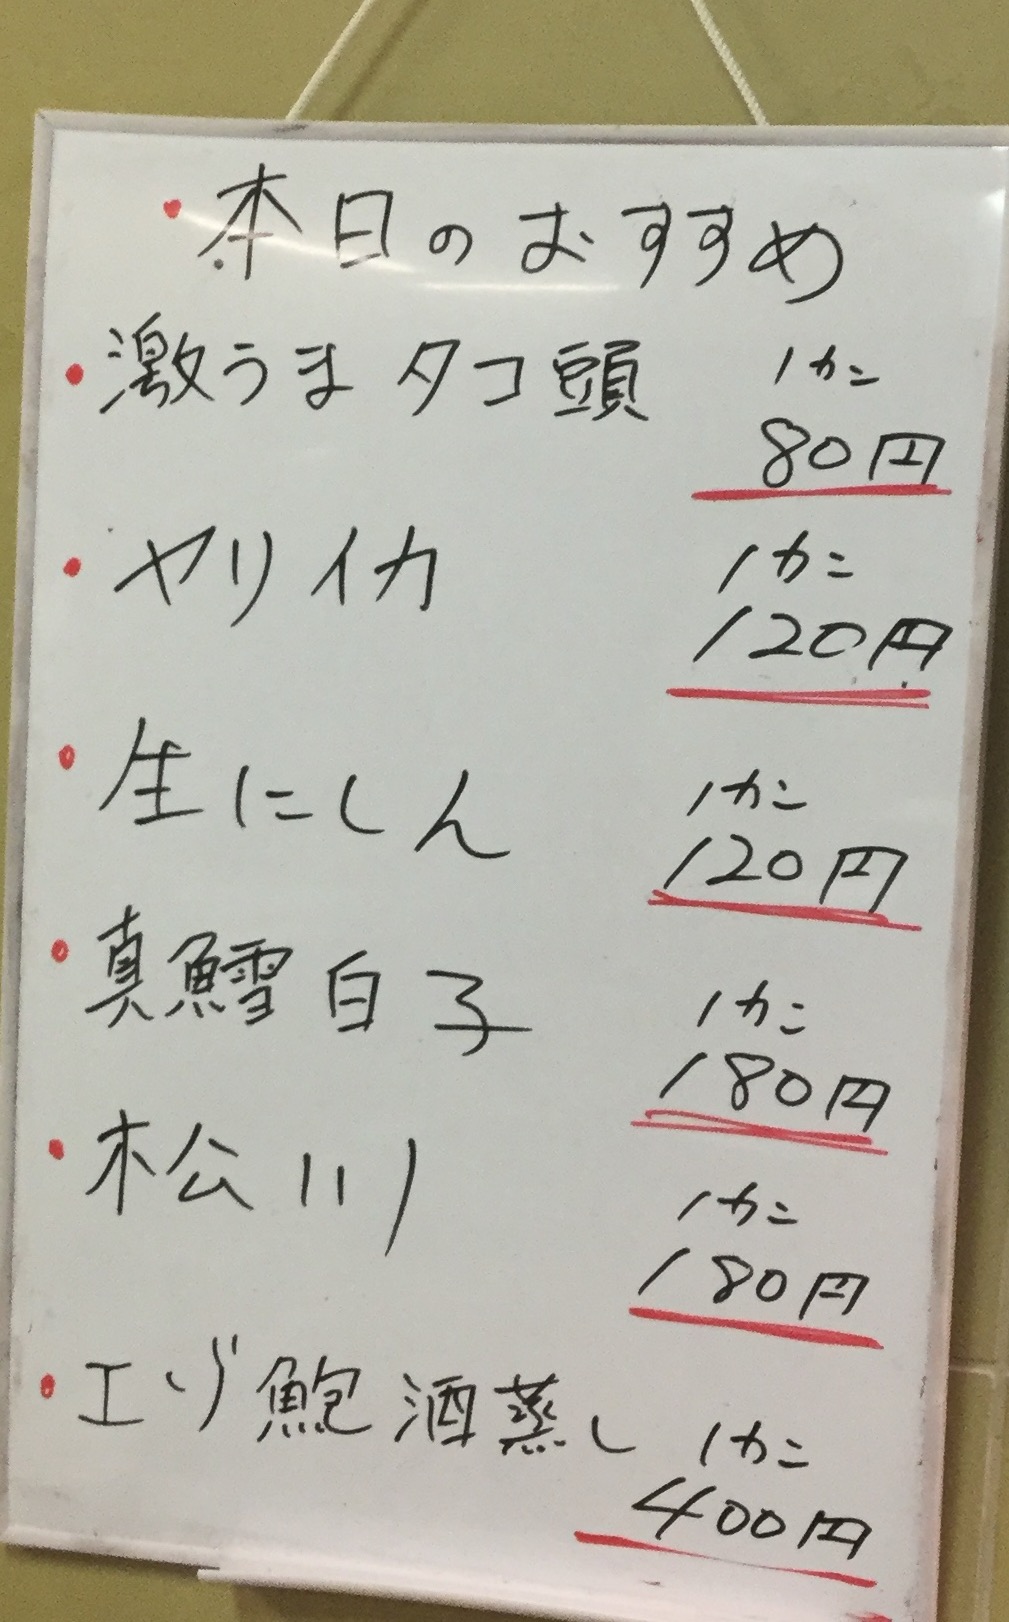 ・本日のおすすめ
・激うまタコ頭 1カニ
80円
・ヤリイカ 1カニ
120円
・生にしん 1カニ
120円
・真鱈白子 1カニ
180円
・松川 1カニ
180円
・エゾ鮑酒蒸し 1カニ
400円